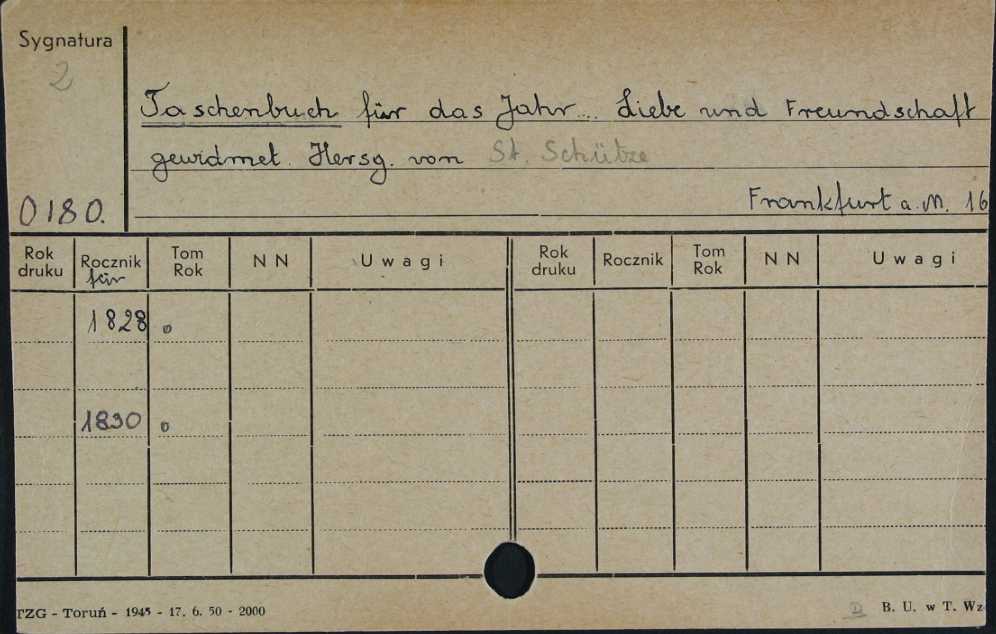 Sygnatura
2
Taschenbuch für das Jahr... Liebe und Freundschaft
gewidmet. Hersg. von St. Schütze
0180.
Frankfurt a. M. 16
Rok druku Rocznik für Tom Rok N N Uwagi Rok druku Rocznik Tom Rok N N Uwagi
1828 o
1830 o
TZG - Toruń - 1945 - 17. 6. 50 - 2000
D B. U. w T. Wz